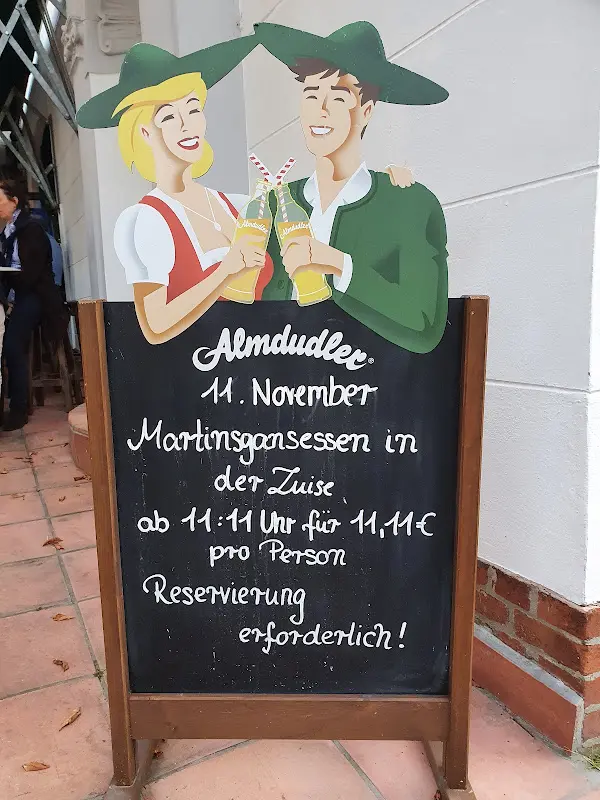 Almdudler Almdudler
Almdudler®
11. November
Martinsgansessen in
der Zuise
ab 11:11 Uhr für 11,11€
pro Person
Reservierung
erforderlich!